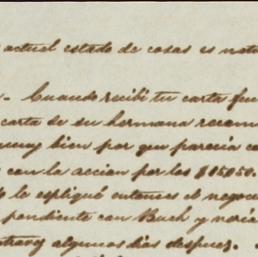 actual estado de cosas es nat
. Cuando recibi tu carta fu
carta de su hermana recom
muy bien por que parecia co
con la accion por los $15050.
le espliqué entonces el negoc
pendiente con Buch y
algunos dias despues.